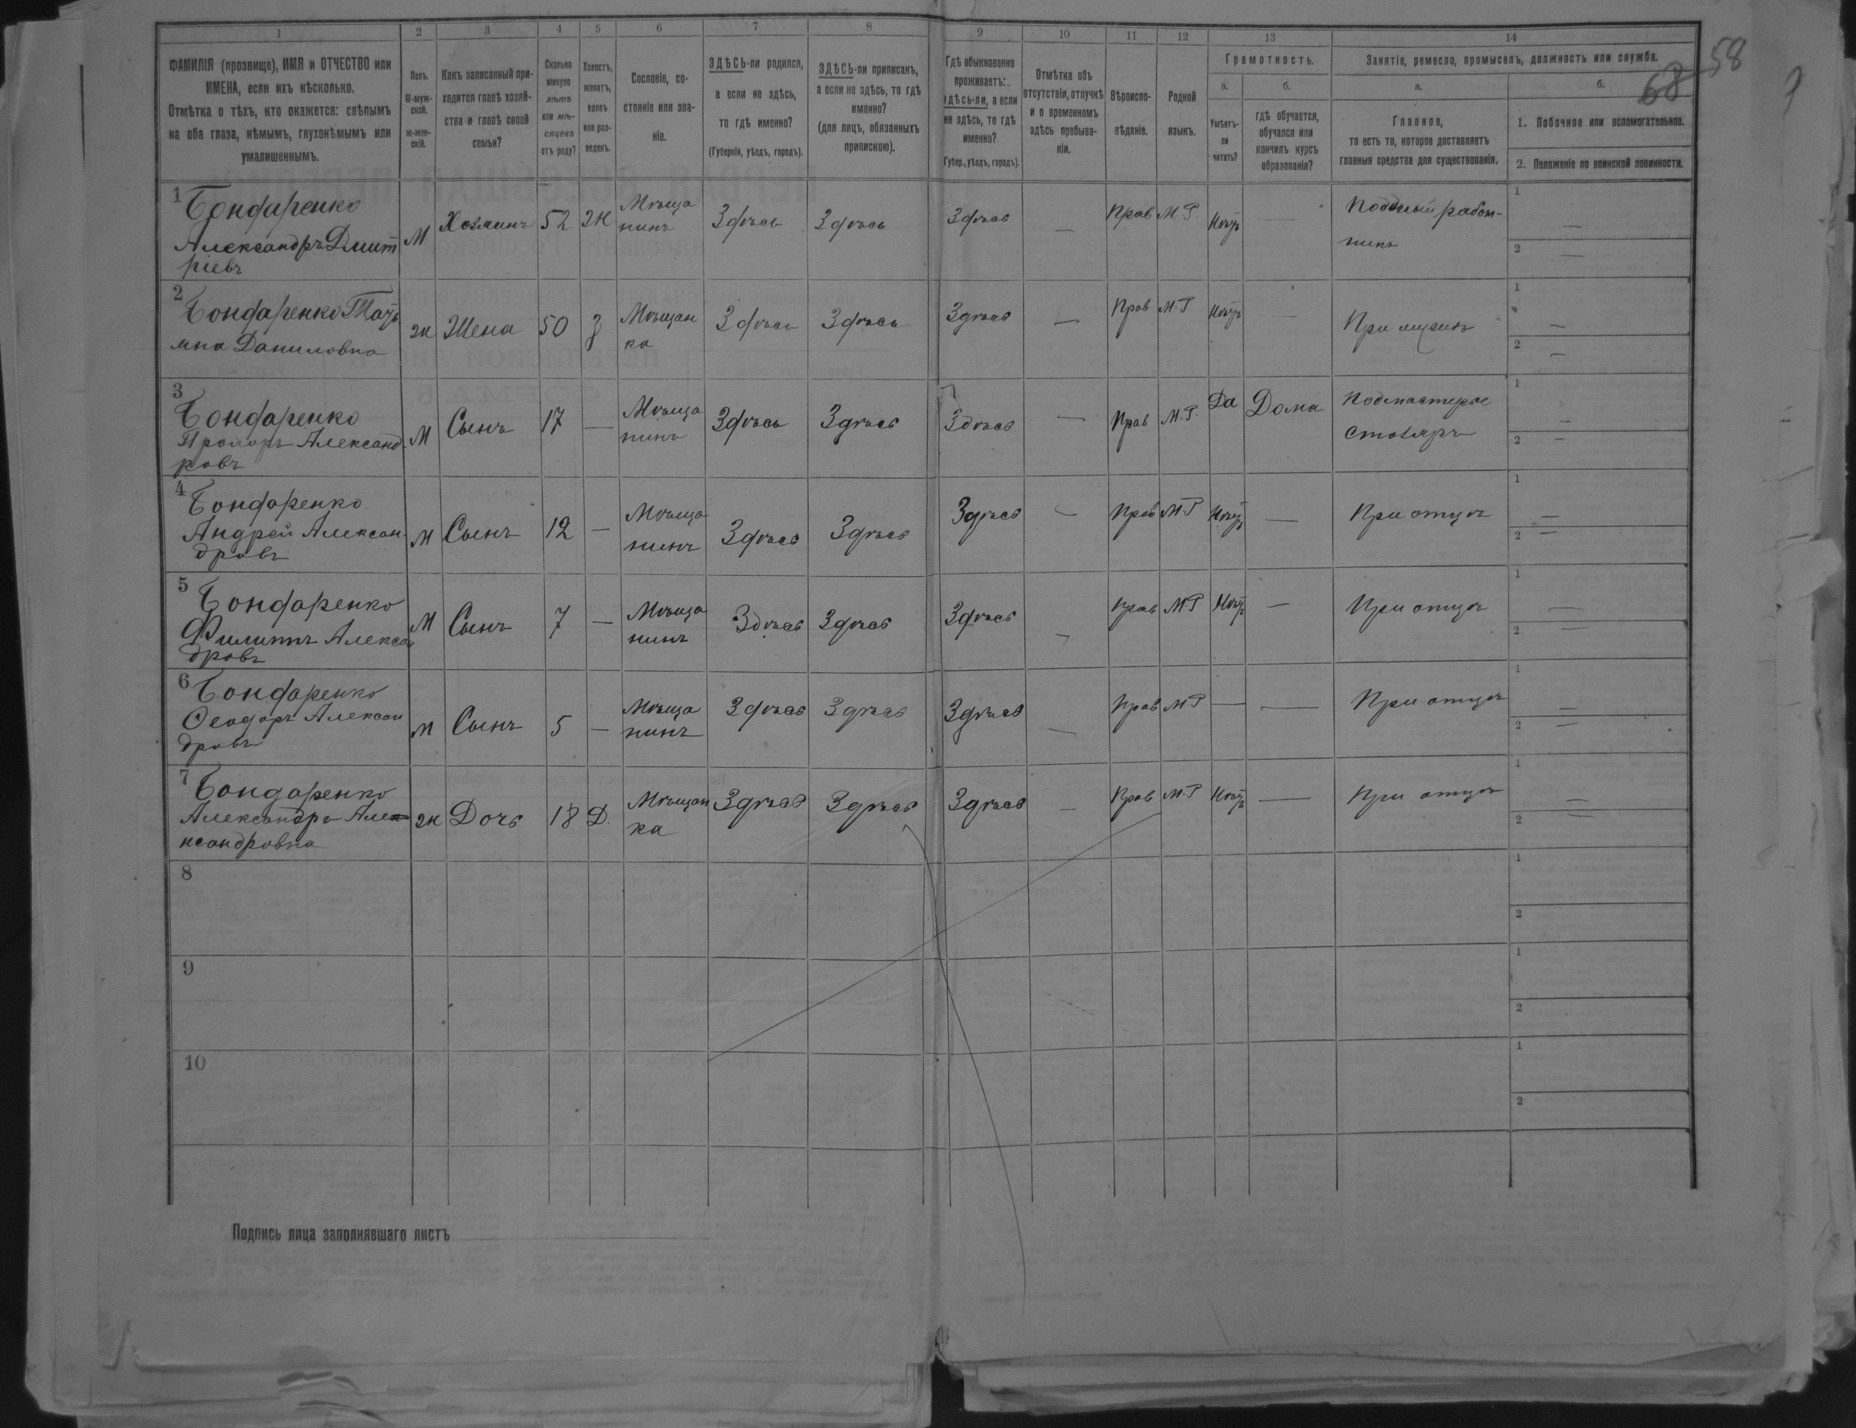 58
68
1 2 3 4 5 6 7 8 9 10 11 12 13 14
ФАМИЛІЯ (прозвище), ИМЯ и ОТЧЕСТВО или
ИМЕНА, если ихъ нѣсколько.
Отмѣтка о тѣхъ, кто окажется: слѣпымъ
на оба глаза, нѣмымъ, глухонѣмымъ или
умалишеннымъ.
Полъ.
М-муж-
ской.
ж-жен-
скій.
Какъ записанный при-
ходится главѣ хозяй-
ства и главѣ своей
семьи?
Сколько
минуло
лѣтъ
или мѣ-
сяцевъ
отъ роду?
Холостъ,
женатъ,
вдовъ
или раз-
веденъ.
Сословіе, со-
стояніе или зва-
ніе.
ЗДѢСЬ-ли родился,
а если не здѣсь,
то гдѣ именно?
(Губернія, уѣздъ, городъ).
ЗДѢСЬ-ли приписанъ,
а если не здѣсь, то гдѣ
именно?
(для лицъ, обязанныхъ
припискою).
Гдѣ обыкновенно
проживаетъ:
здѣсь-ли, а если
не здѣсь, то гдѣ
именно?
(Губер., уѣздъ, городъ).
Отмѣтка объ
отсутствіи, отлучкѣ
и о временномъ
здѣсь пребыва-
ніи.
Вѣроиспо-
вѣданіе.
Родной
языкъ.
Грамотность.
а.
Умѣетъ-
ли
читать?
б.
гдѣ обучается,
обучался или
кончилъ курсъ
образованія?
Занятіе, ремесло, промыселъ, должность или служба.
а.
Главное,
то есть то, которое доставляетъ
главныя средства для существованія.
б.
1. Побочное или вспомогательное.
2. Положеніе по воинской повинности.
1 Бондаренко
Александръ Дмит
ріевъ
М Хозяинъ 52 Ж Мѣща
нинъ
Здѣсь Здѣсь Здѣсь — Прав М.Р. Нѣтъ —
— —
2 Бондаренко Татъ
яна Даниловна
Ж Жена 50 З Мѣщан
ка
Здѣсь Здѣсь Здѣсь — Прав М.Р Нѣтъ —
При мужѣ
— —
3 Бондаренко
Прохоръ Александ
ровъ
М Сынъ 17 — Мѣща
нинъ
Здѣсь Здѣсь Здѣсь — Прав М.Р. Да Дома
Подмастерье
столяръ
— —
4 Бондаренко
Андрей Алексан
дровъ
М Сынъ 12 — Мѣща
нинъ
Здѣсь Здѣсь Здѣсь — Прав М.Р Нѣтъ —
При отцѣ
— —
5 Бондаренко
Филиппъ Алексан
дровъ
М Сынъ 7 — Мѣща
нинъ
Здѣсь Здѣсь Здѣсь — Прав М.Р Нѣтъ —
При отцѣ
— —
6 Бондаренко
Ѳеодоръ Алексан
дровъ
М Сынъ 5 — Мѣща
нинъ
Здѣсь Здѣсь Здѣсь — Прав М.Р — —
При отцѣ
— —
7 Бондаренко
Александра Алек
сандровна
Ж Дочь 18 Д. Мѣщан
ка
Здѣсь Здѣсь Здѣсь — Прав М.Р Нѣтъ —
При отцѣ
— —
8
9
10
Подпись лица заполнявшаго листъ